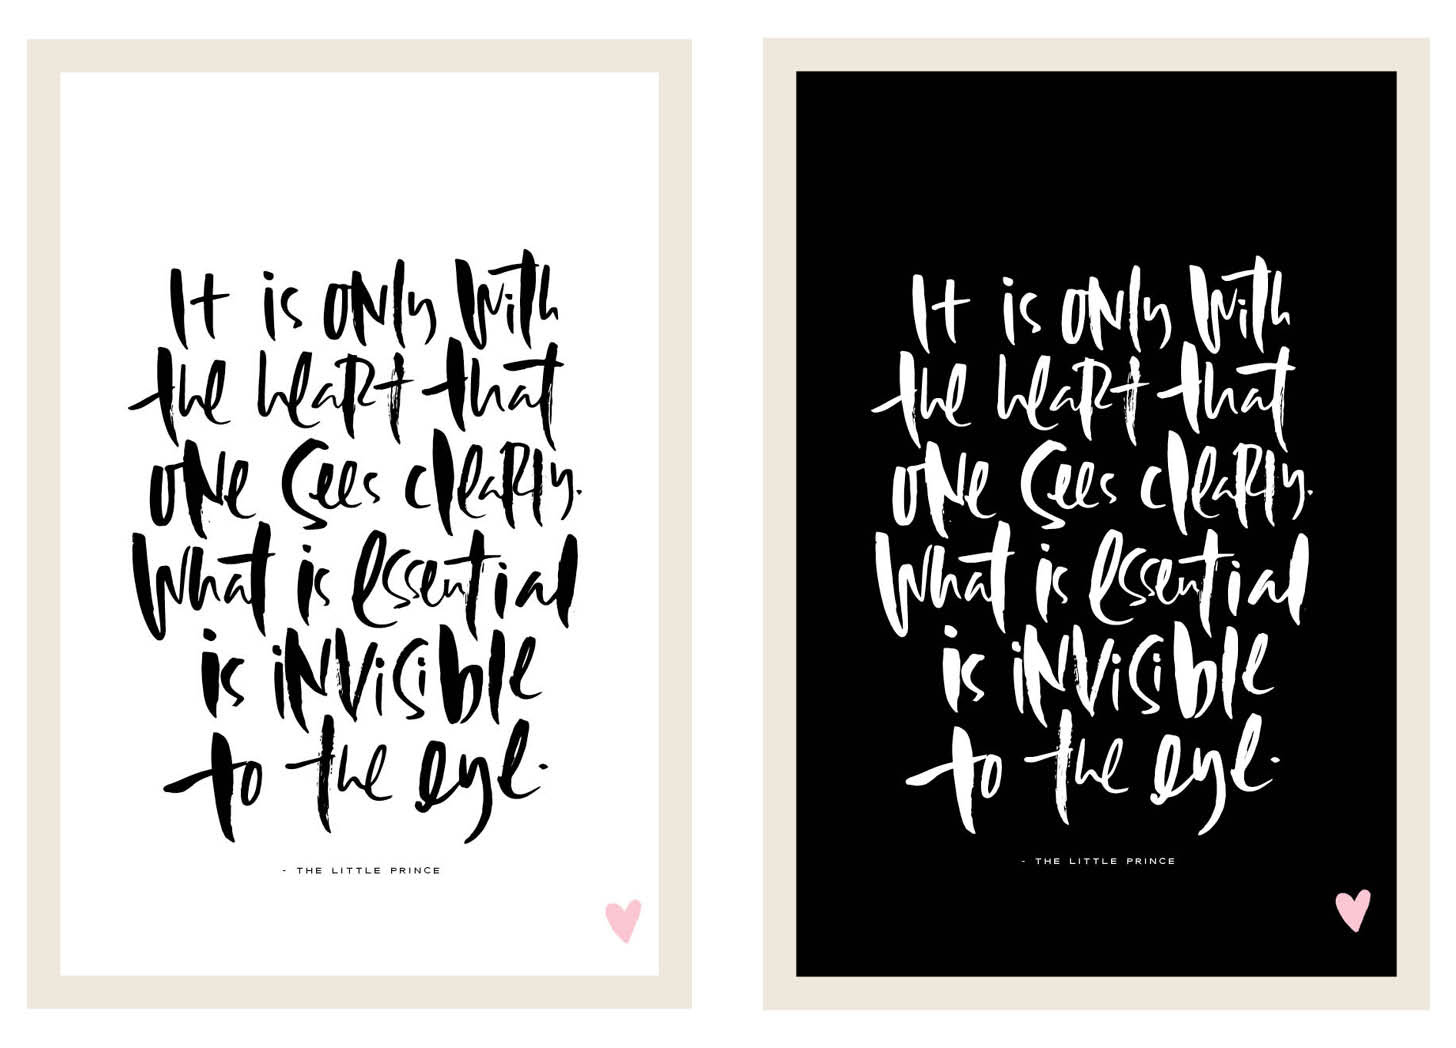 It is only with
the heart that
one sees clearly.
What is essential
is invisible
to the eye.
- THE LITTLE PRINCE
It is only with
the heart that
one sees clearly.
What is essential
is invisible
to the eye.
- THE LITTLE PRINCE